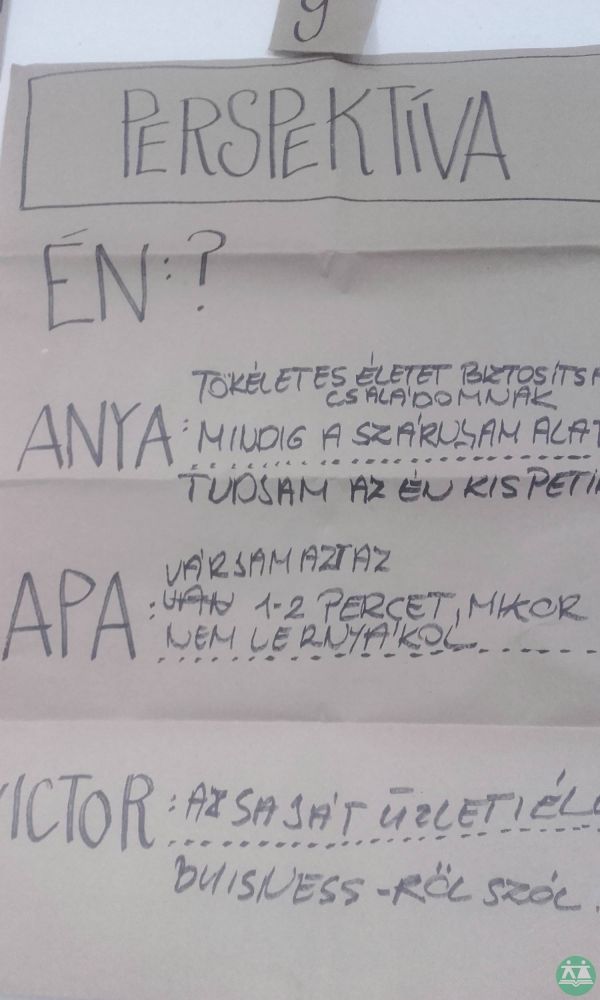 g
PERSPEKTÍVA
ÉN: ?
TÖKÉLETES ÉLETET BIZTOSÍTSA
CSALÁDOMNAK
ANYA: MINDIG A SZÁRNYAM ALAT
TUDJAM AZ ÉN KISPETI
APA: VÁRJAM AZT AZ
VAN 1-2 PERCET, MIKOR
NEM LE RNYÁKOL
VICTOR: A SAJÁT ÜZLETI ÉL
BUISNESS-RŐL SZÓL.